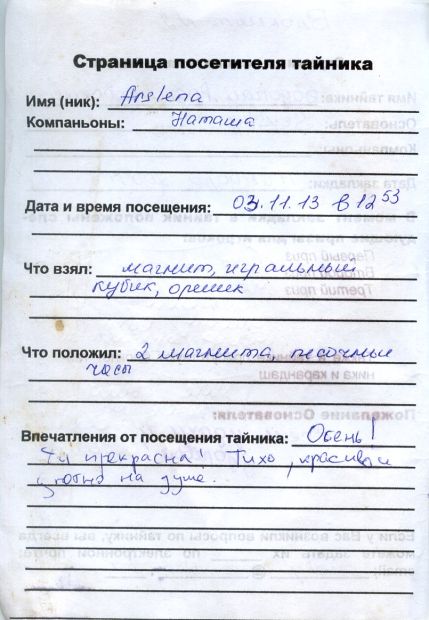 Страница посетителя тайника
Имя (ник): Arslena
Компаньоны: Наташа
Дата и время посещения: 03.11.13 в 12 53
Что взял: магнит, игральный
кубик, орешек
Что положил: 2 магнита, песочные
часы
Впечатления от посещения тайника: Осень!
Ты прекрасна! Тихо, красиво и
уютно на душе.